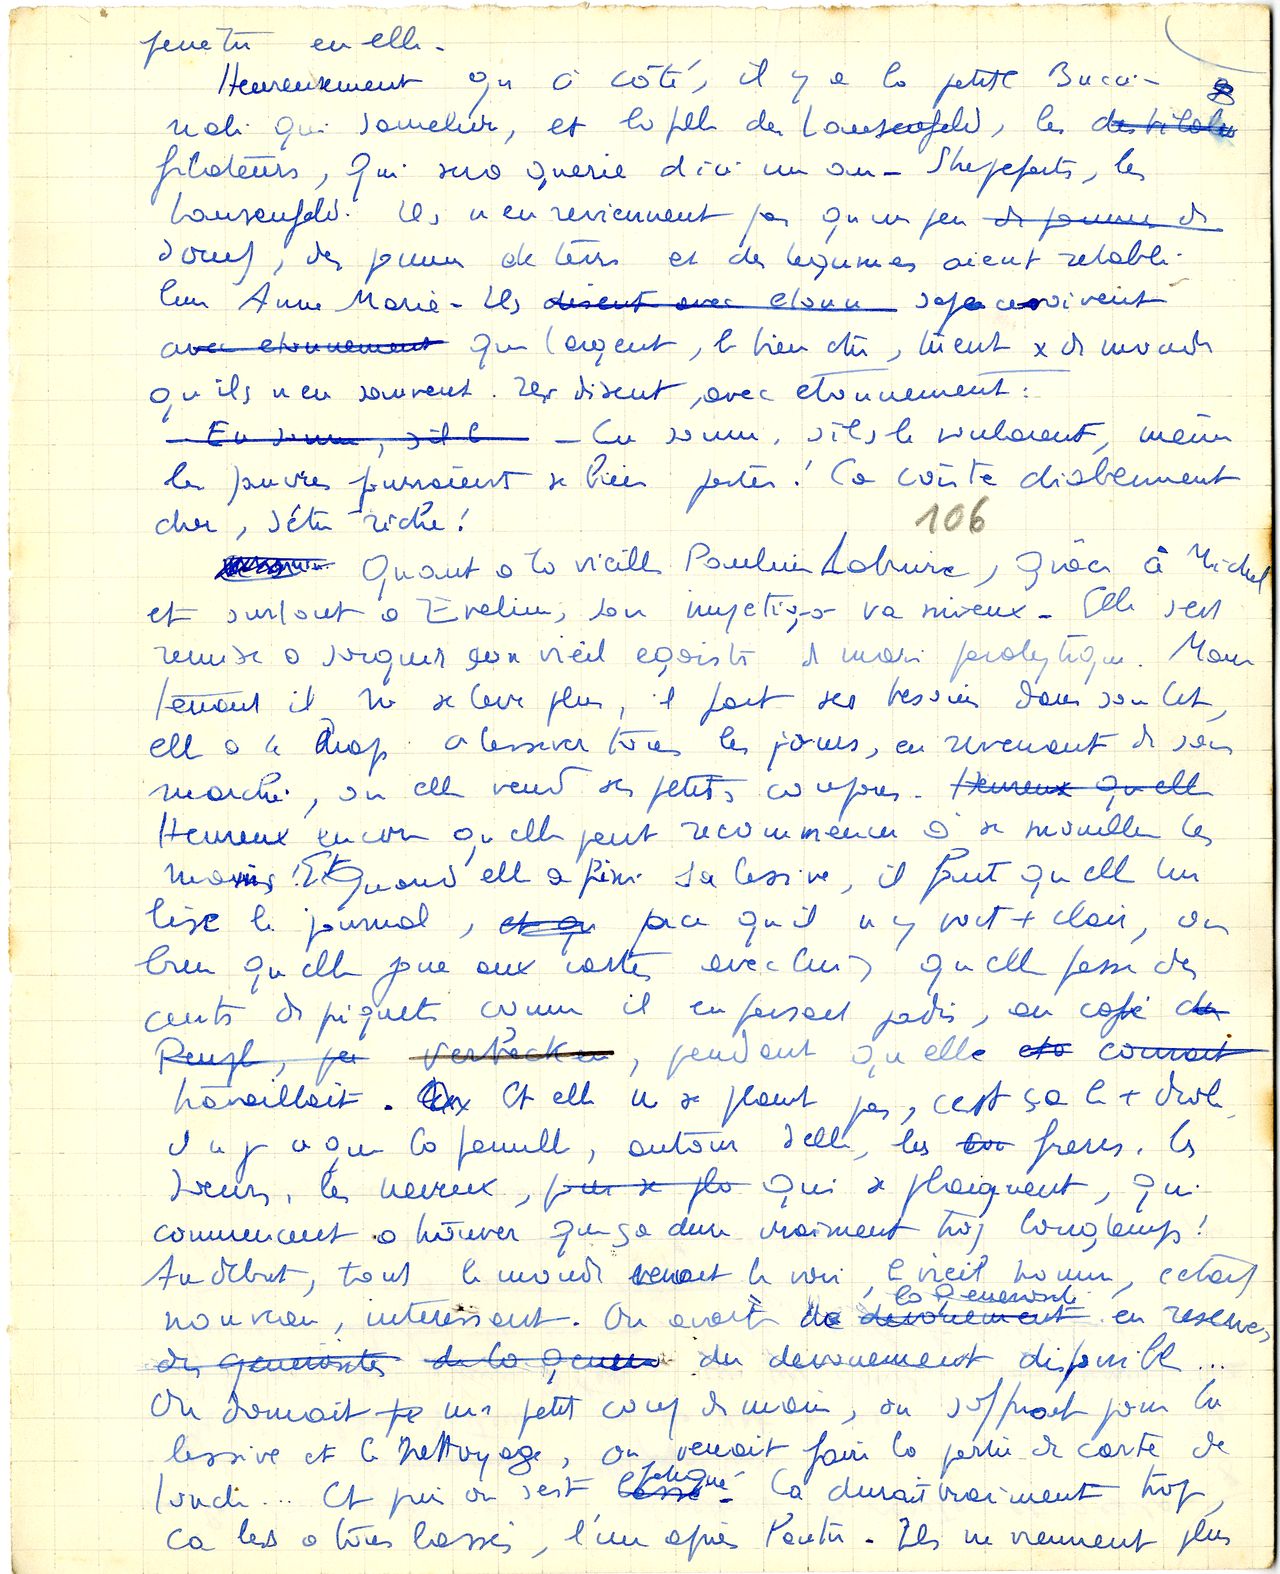 en elle.
Heureusement qu'à côté, il y a la petite Bucci-
nali qui s'améliore, et la fille des Lausenfeld, les
filateurs, qui sera guérie d'ici un an - Stupéfaits, les
Lausenfeld. Ils n'en reviennent pas qu'un peu de
d'oeufs, des pommes de terre et des légumes aient rétabli
leur Anne Marie - Ils disent avec étonn s'aperçoivent
avec étonnement que l'argent, le bien être, tuent + de monde
qu'ils n'en sauvent. Ils disent, avec étonnement :
- En somme, s'il l - En somme, s'ils le voulaient, même
les pauvres pourraient se bien porter ! Ça coûte diablement
cher, d'être riche !
106
Quant à la vieille Pauline, grâce à Michel
et surtout à Eveline, son va mieux - Elle s'est
remise à soigner son vieil égoïste de mari paralytique. Main
tenant il ne se lève plus, il fait ses besoins dans son lit,
elle a le drap à lessiver tous les jours, en revenant de son
marché, où elle vend ses petits coupons. Heureux qu'elle
Heureux encore qu'elle peut recommencer à se mouiller les
mains ! Et quand elle a fini sa lessive, il faut qu'elle lui
lise le journal, et qu parce qu'il n'y voit + clair, ou
bien qu'elle joue aux cartes avec lui, qu'elle fasse des
cents de piquets comme il en faisait jadis, au café
, pendant qu'elle
travaillait. Et elle ne se plaint pas, c'est ça le + drôle,
il n'y a que la famille, autour d'elle, les frères, les
soeurs, les neveux, qui se plaignent, qui
commencent à trouver que ça dure vraiment trop longtemps !
Au début, tout le monde venait le voir, le vieil homme, c'était
la générosité
nouveau, intéressant. On avait de dévouement en réserve,
des générosités de la génér du dévouement disponible ...
On donnait un petit coup de main, on s'offrait pour la
lessive et le nettoyage, on venait faire la partie de carte de
fatigué
lundi ... Et puis on s'est lassé - Ça durait vraiment trop,
Ça les a tous lassés, l'un après l'autre. Ils ne viennent plus